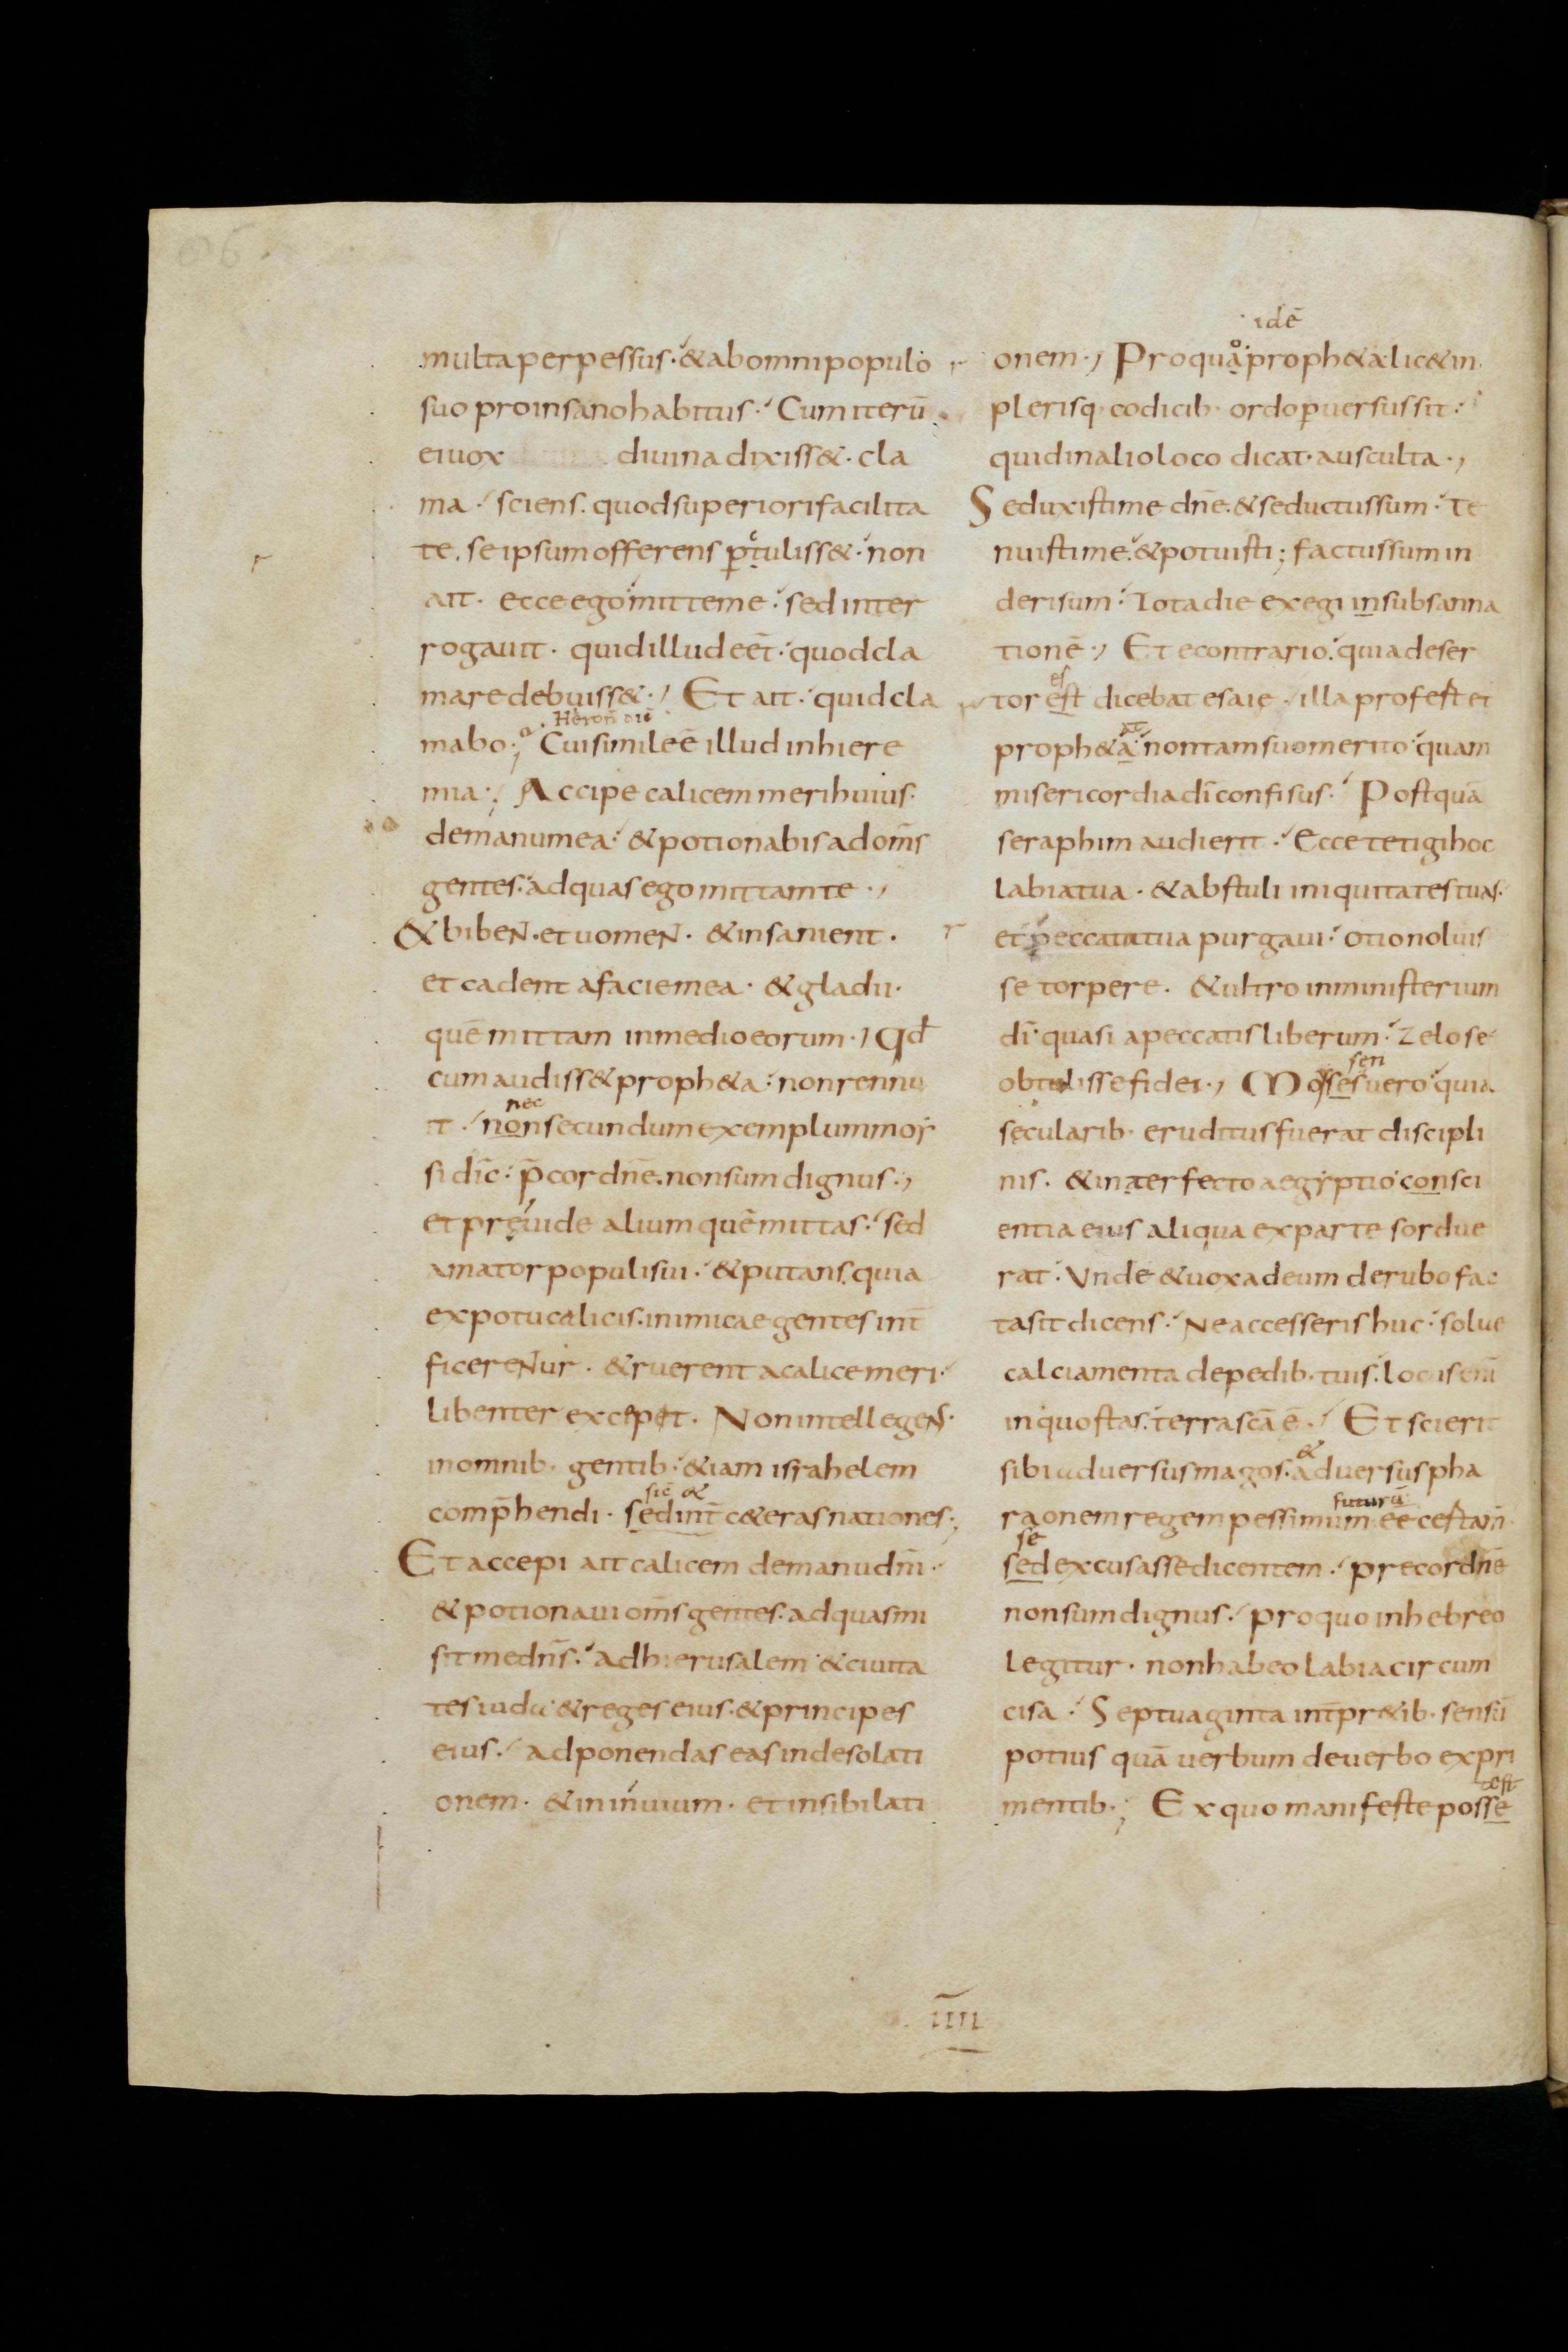 multa perpessus. & ab omni populo
suo pro insano habitus. Cum iterū
ei uox divina dixiss&. cla
ma. sciens. quod superiori facilita
te. se ipsum offerens ptuliss&. non
ait. ecce ego mitte me. sed inter
rogavit. quid illud eēt. quod cla
mare debuiss&. Et ait. quid cla
mabo. Cui simile ē illud in hiere
mia. Accipe calicem meri huius.
de manu mea. & potionabis ad om̄s
gentes. ad quas ego mittam te.
& biben. et uomen. & insanient.
et cadent a facie mea. & gladii.
quē mittam in medio eorum. Qd
cum audiss& proph&a. non rennu
it. nec
non secundum exemplum moy
si dīc. p̄cor dn̄e. non sum dignus.
et previde alium quē mittas. sed
amator populi sui. & putans. quia
ex potu calicis. inimicae gentes int̄
ficerentur. & ruerent a calice meri.
libenter excepit. Non intellegens.
in omnib. gentib. &iam israhelem
comp̄hendi. sed int̄ c&eras nationes.
Et accepi ait calicem de manu dn̄i.
& potionavi om̄s gentes. ad quas mi
sit me dn̄s. ad hierusalem & civita
tes iuda & reges eius. & principes
eius. ad ponendas eas in desolati
onem. & in invium. et in sibilati
idē
onem. Pro qua proph&a. lic& in
plerisq. codicib. ordo pversus sit.
quid in alio loco dicat. ausculta.
Seduxisti me dn̄e. & seductus sum. Te
nuisti me. & potuisti. factus sum in
derisum. Tota die exegi in subsanna
tionē. Et e contrario. quia deser
es
tor est dicebat esaie. illa prof est ei
proph&a. non tam suo merito. quam
misericordia dī confisus. Postquā
seraphim audierit. Ecce tetigi hoc
labia tua. & abstuli iniquitates tuas.
et peccata tua purgavi. otio noluis
se torpere. & ultro in ministerium
dī quasi a peccatis liberum. zelo se
sen
obtulisse fidei. Moyses uero. quia
secularib. eruditus fuerat discipli
nis. & interfecto aegyptio consci
entia eius aliqua ex parte sordue
rat. Unde & uox ad eum de rubo fac
ta sit dicens. Ne accesseris huc. solue
calciamenta de pedib. tuis. locus enī
in quo stas. terra scā ē. Et scierit
&
sibi adversus magos. adversus pha
futurū
raonem regem pessimum eē cestam̄.
se
sed excusasse dicentem. precor dn̄e
non sum dignus. pro quo in hebreo
legitur. non habeo labia circum
cisa. Septuaginta int̄pr&ib. sensū
potius quā verbum de verbo expri
est
mentib. Ex quo manifeste posse
īīīī